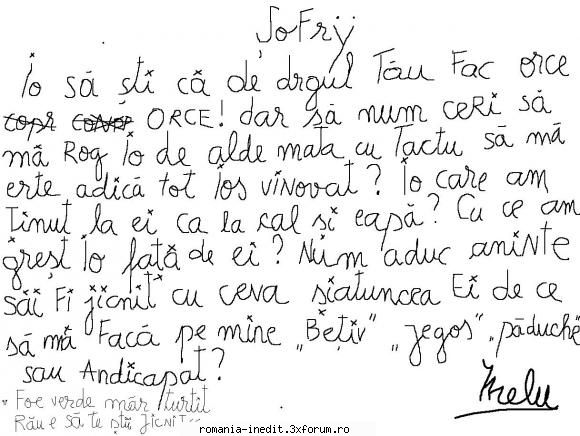 Șofrÿ
Io să ști că de drgul Tău Fac orce
ORCE! dar să num ceri să
mă Rog Io de alde mata cu Tactu să mă
erte adică tot Ios vinovat? Io care am
Ținut la ei ca la cal și eapă? Cu ce am
greșt Io față de ei? Num aduc aminte
săi Fi jicnit* cu ceva siatuncea Ei de ce
să mă Facă pe mine „Bețiv" „jegos" „păduche
sau Andicapat?
* Foe verde măr turtit
Rău e să te știi Jicnit
romania-inedit.3xforum.ro